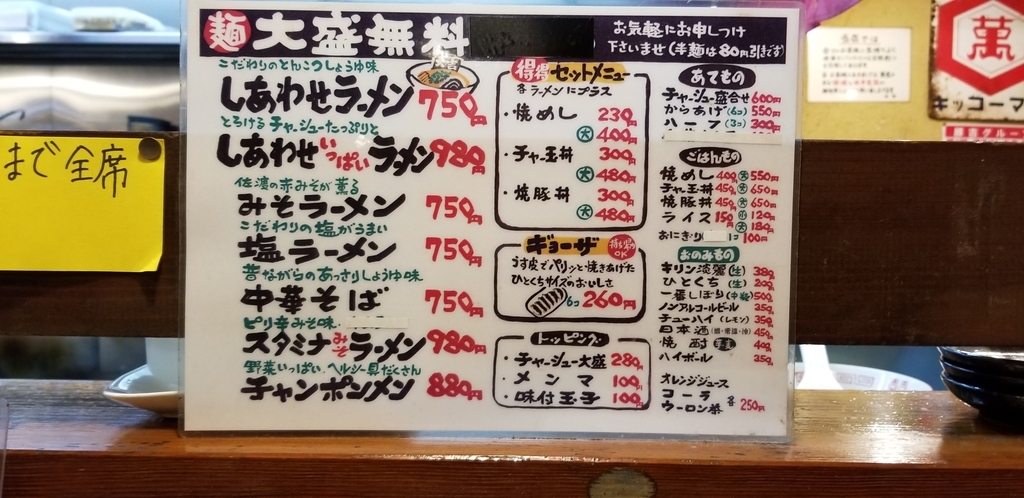 麺 大盛無料
お気軽にお申しつけ
下さいませ(半麺は80円引きです)
こだわりのとんこつしょうゆ味
しあわせラーメン 750円
とろけるチャーシューたっぷりと
しあわせいっぱいラーメン 980円
佐渡の赤みそが薫る
みそラーメン 750円
こだわりの塩がうまい
塩ラーメン 750円
昔ながらのあっさりしょうゆ味
中華そば 750円
ピリ辛みそ味
スタミナみそラーメン 980円
野菜いっぱい、ヘルシー具だくさん
チャンポンメン 880円
得得セットメニュー
各ラーメンにプラス
・焼めし 230円
大 400円
・チャー玉丼 300円
大 480円
・焼豚丼 300円
大 480円
ギョーザ 持ち帰りOK
うす皮でパリッと焼きあげた
ひとくちサイズのおいしさ
6コ 260円
トッピング
・チャーシュー大盛 280円
・メンマ 100円
・味付玉子 100円
あてもの
チャーシュー盛合せ 600円
からあげ(6コ) 550円
ハーフ(3コ) 300円
ごはんもの
焼めし 400円 大 550円
チャー玉丼 450円 大 650円
焼豚丼 450円 大 650円
ライス 150円 小 120円
大 180円
おにぎり 1コ 100円
おのみもの
キリン淡麗(生) 380円
ひとくち(生) 200円
一番しぼり(中瓶) 500円
ノンアルコールビール 350円
チューハイ(レモン) 350円
日本酒 450円
焼酎 400円
ハイボール 350円
オレンジジュース
コーラ
ウーロン茶
各 250円
まで全席
萬
キッコーマ